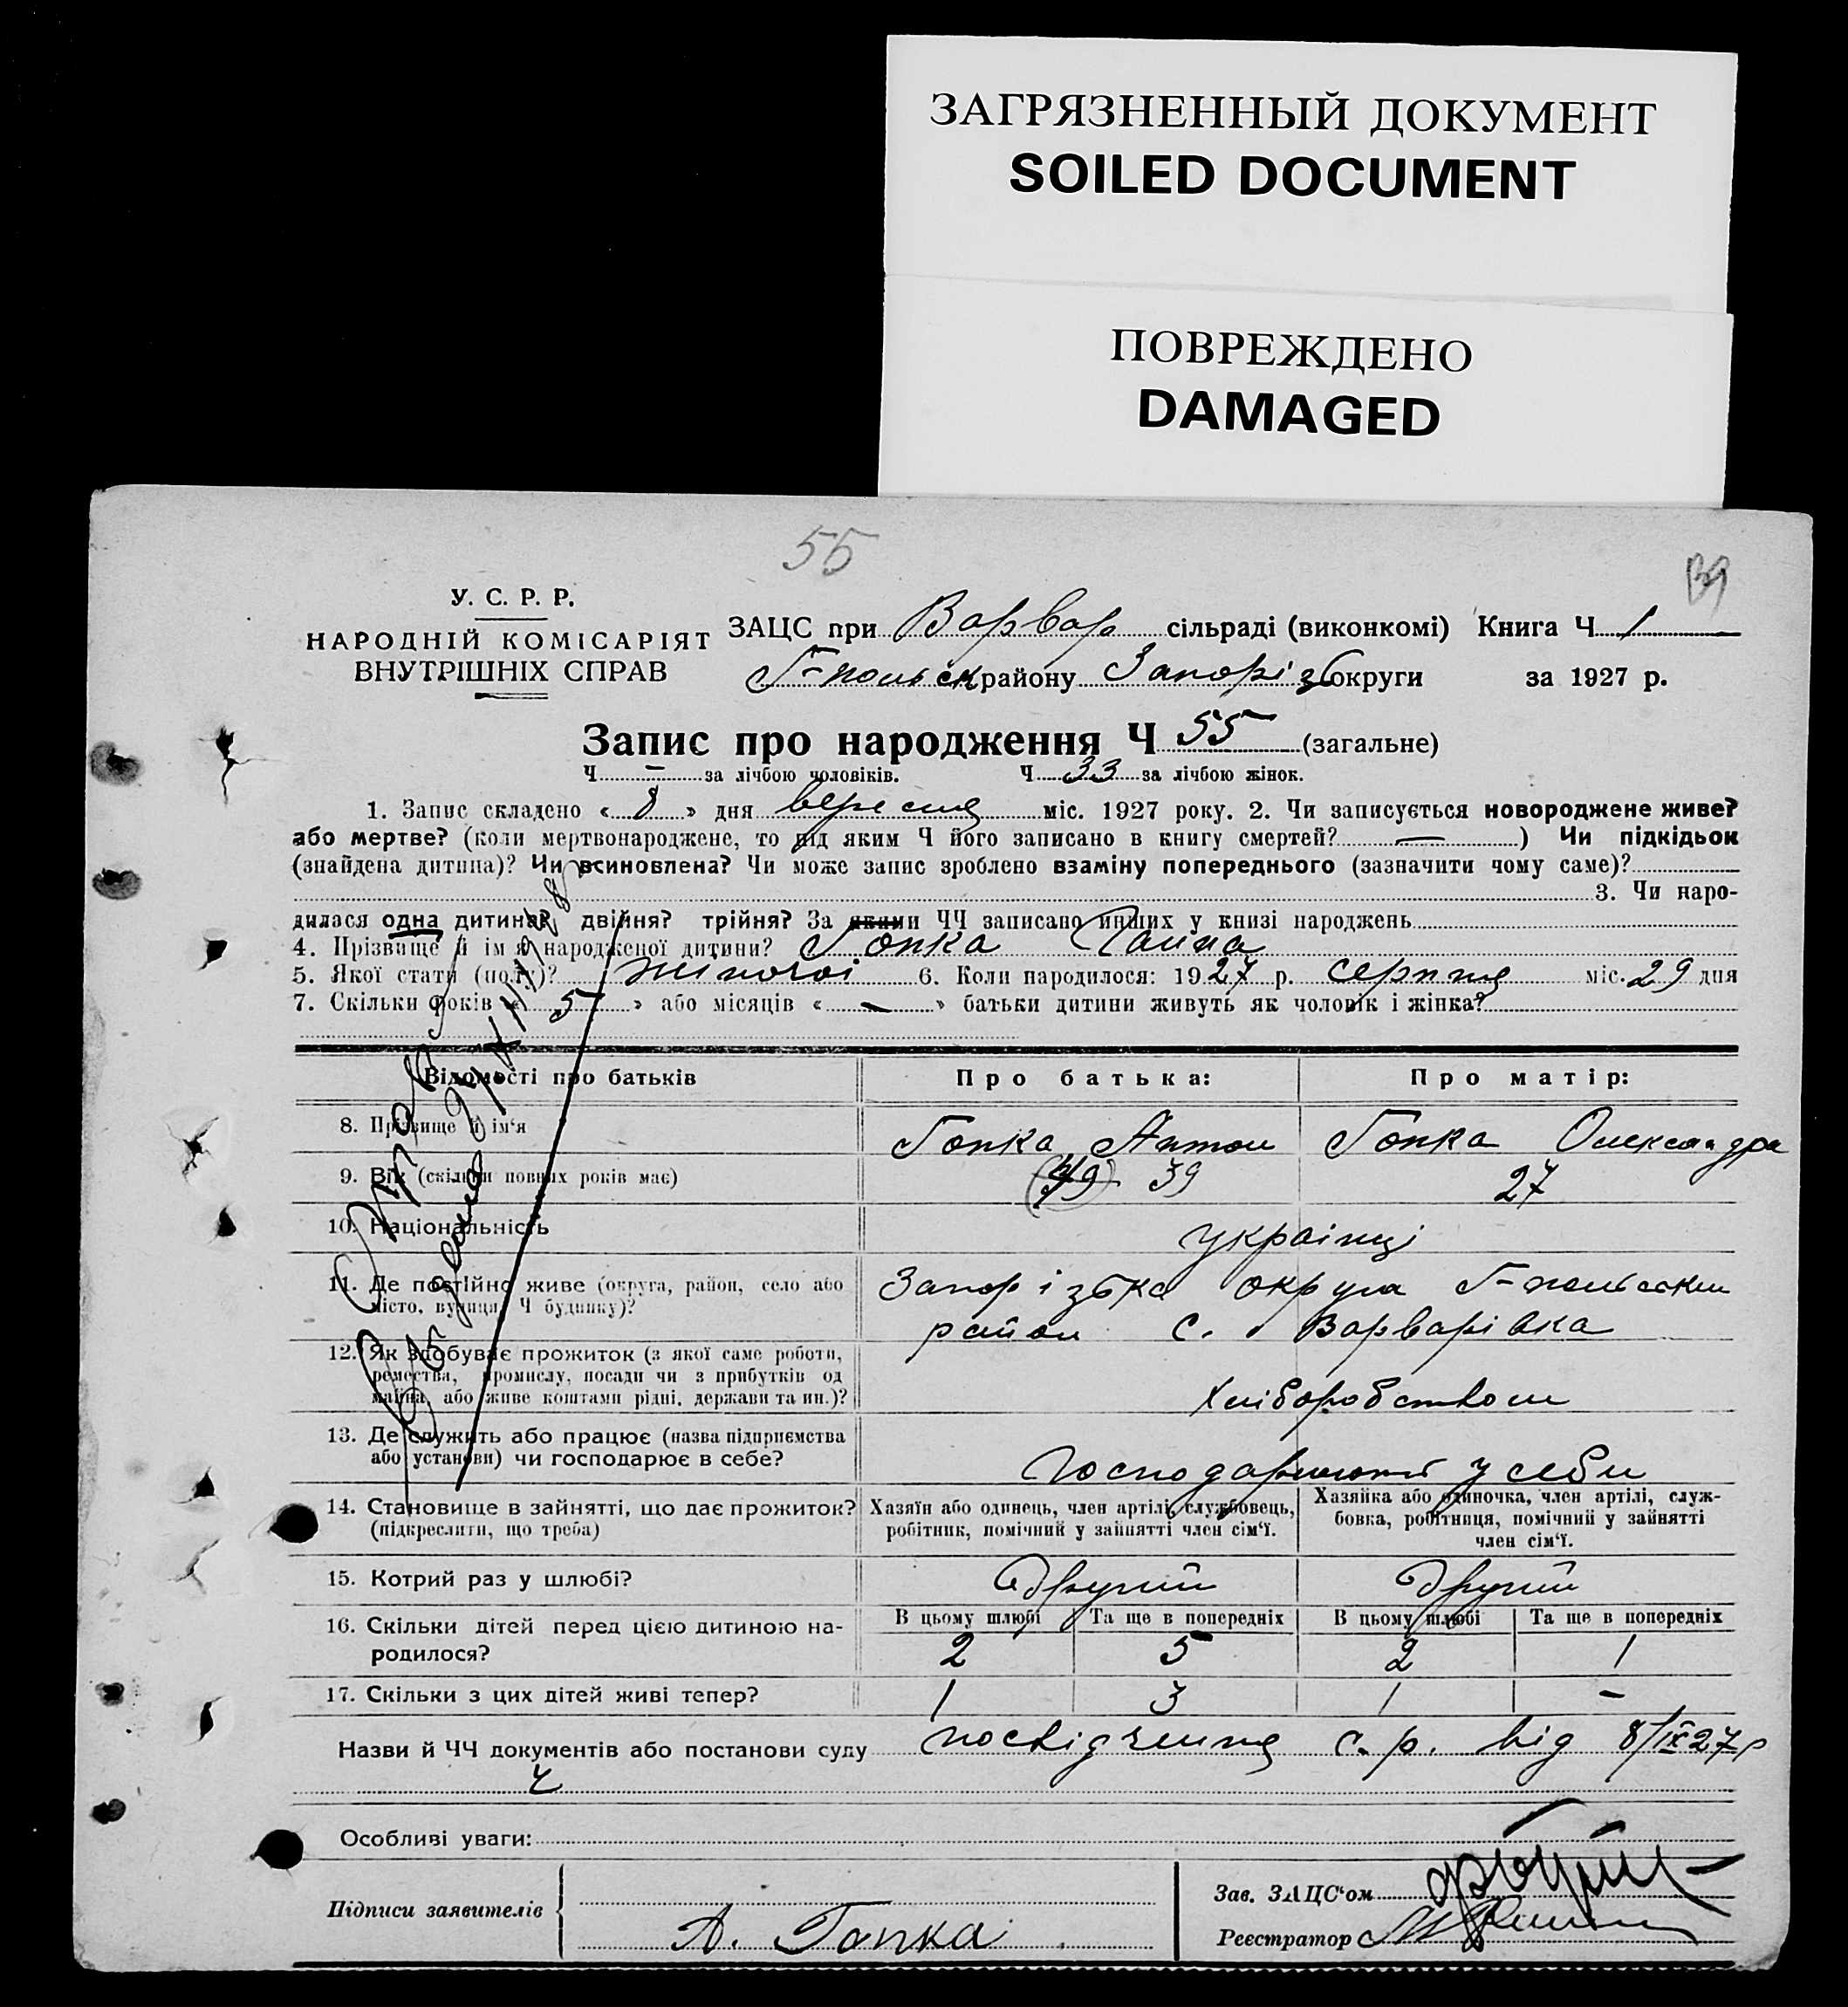 ЗАГРЯЗНЕННЫЙ ДОКУМЕНТ
SOILED DOCUMENT
ПОВРЕЖДЕНО
DAMAGED
55
У. С. Р. Р.
НАРОДНІЙ КОМІСАРІЯТ
ВНУТРІШНІХ СПРАВ
ЗАЦС при Варвар сільраді (виконкомі) Книга Ч 1
Г-польск району Запоріз округи за 1927 р.
Запис про народження Ч 55 (загальне)
Ч — за лічбою чоловіків. Ч 33 за лічбою жінок.
1. Запис складено « 8 » дня вересня міс. 1927 року. 2. Чи записується новороджене живе?
або мертве? (коли мертвонароджене, то під яким Ч його записано в книгу смертей? — ) Чи підкідьок
(знайдена дитина)? Чи всиновлена? Чи може запис зроблено взаміну попереднього (зазначити чому саме)?
3. Чи наро-
дилася одна дитина? двійня? трійня? За якими ЧЧ записано инших у книзі народжень
4. Прізвище й ім'я народженої дитини? Гопка Ганна
5. Якої стати (полу)? жіночої 6. Коли народилося: 1927 р. серпня міс. 29 дня
7. Скільки років « 5 » або місяців « — » батьки дитини живуть як чоловік і жінка?
Відомості про батьків Про батька: Про матір:
8. Прізвище й ім'я Гопка Антон Гопка Олександра
9. Вік (скільки повних років має) 39 27
10. Національність українці
11. Де постійно живе (округа, район, село або Запорізбка округа Г-польский
місто, вулиця, Ч будинку)? район с. Варварівка
12. Як здобуває прожиток (з якої саме роботи,
ремества, промислу, посади чи з прибутків од
майна, або живе коштами рідні, держави та ин.)? Хліборобством
13. Де служить або працює (назва підприємства
або установи) чи господарює в себе? господарюють у себи
14. Становище в зайнятті, що дає прожиток? Хазяїн або одинець, член артілі, службовець, Хазяйка або одиночка, член артілі, служ-
(підкреслити, що треба) робітник, помічний у зайнятті член сім'ї. бовка, робітниця, помічний у зайнятті
член сім'ї.
15. Котрий раз у шлюбі? Другий Другий
16. Скільки дітей перед цією дитиною на- В цьому шлюбі Та ще в попередніх В цьому шлюбі Та ще в попередніх
родилося? 2 5 2 1
17. Скільки з цих дітей живі тепер? 1 3 1 —
Назви й ЧЧ документів або постанови суду посвідчення с.р. від 8/IX 27р
Особливі уваги:
Підписи заявителів
А. Гопка
Зав. ЗАЦС'ом
Реєстратор